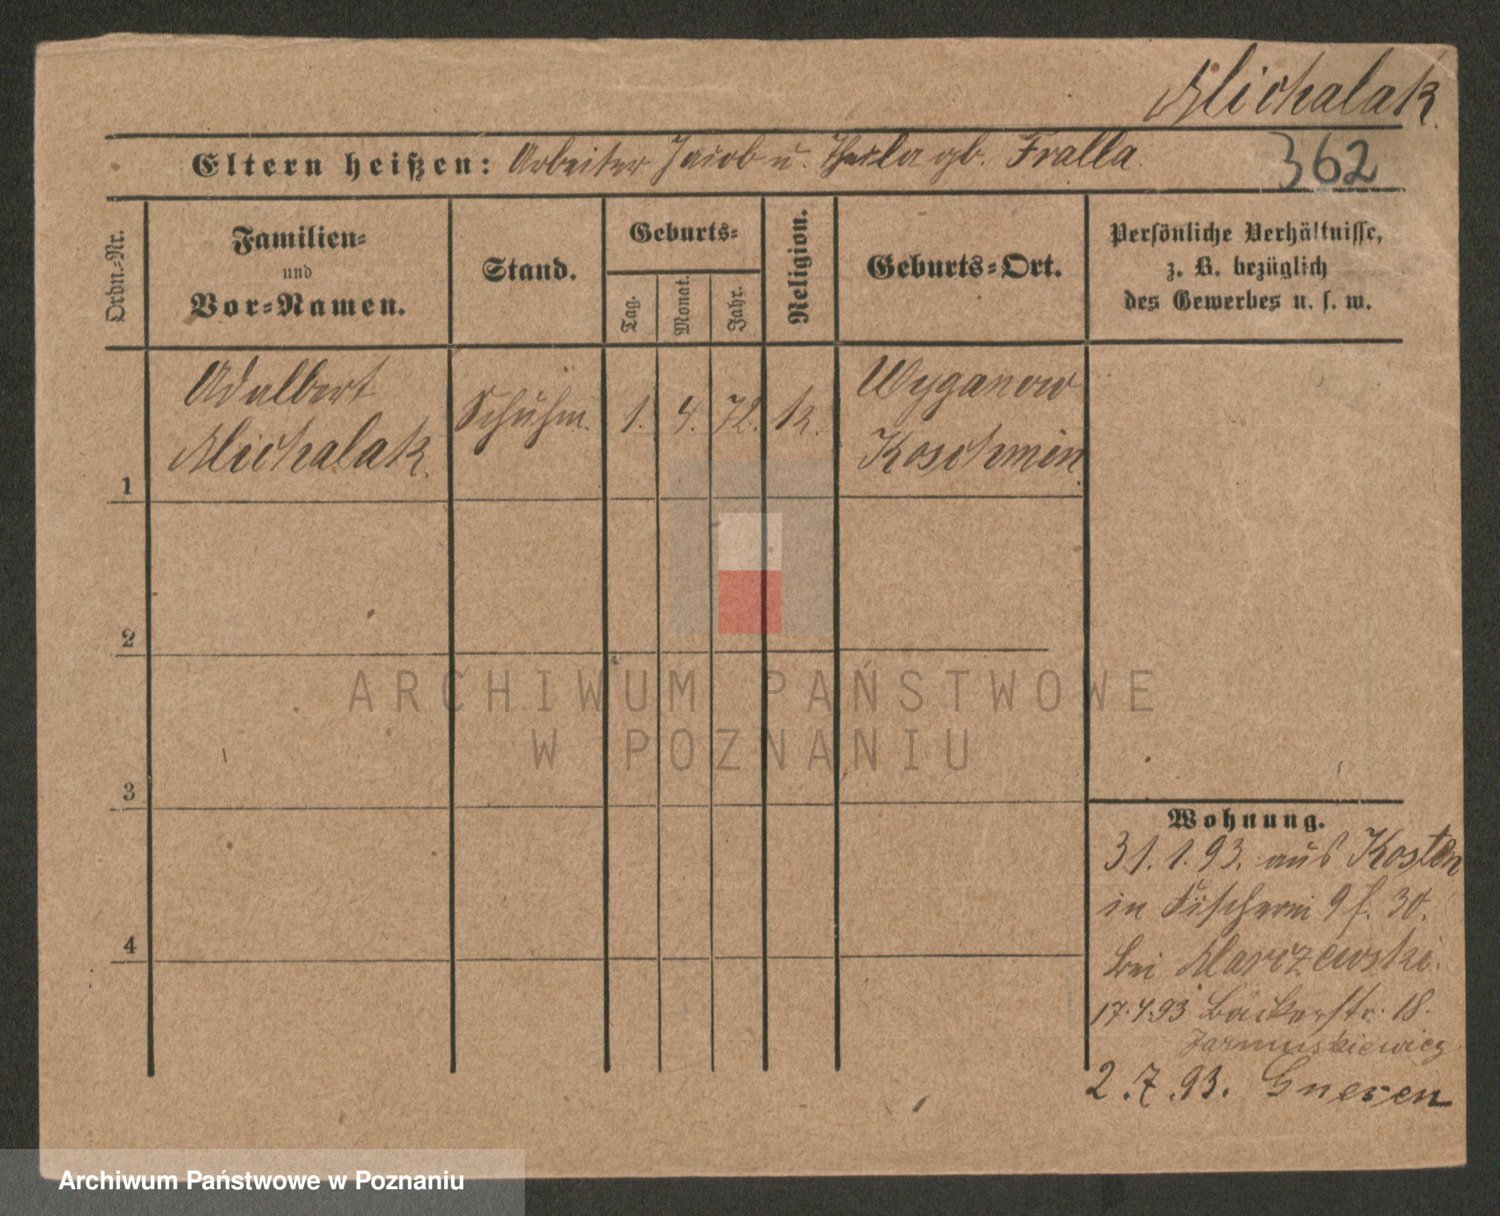 Michalak.
Eltern heißen: Arbeiter Jacob u. Thekla gb. Fralla.
362
Ordn.-Nr.
Familien-
und
Vor-Namen.
Stand.
Geburts-
Tag.
Monat.
Jahr.
Religion.
Geburts-Ort.
Persönliche Verhältnisse,
z. B. bezüglich
des Gewerbes u. s. w.
1
Adalbert
Michalak.
Schuhm.
1.
4.
72.
k.
Wyganow
Koschmin
2
3
4
Wohnung.
31.1.93. aus Kosten
in Fischerei 9 f. 30.
bei Marzewski.
17.4.93 Bäckerstr. 18.
Jarmuskiewicz
2.7.93. Gnesen
ARCHIWUM PAŃSTWOWE
W POZNANIU
Archiwum Państwowe w Poznaniu